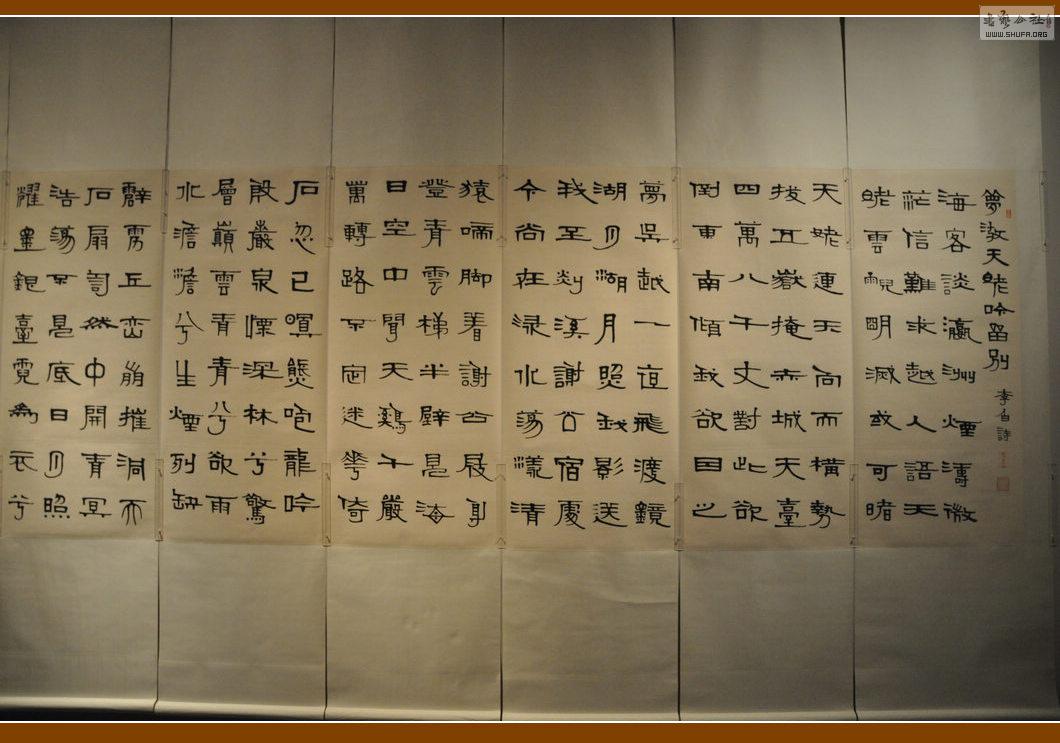 夢遊天姥吟留別
李白詩
海客談瀛洲煙濤微
茫信難求越人語天
姥雲霓明滅或可睹
天姥連天向天橫勢
拔五嶽掩赤城天臺
四萬八千丈對此欲
倒東南傾我欲因之
夢吳越一夜飛渡鏡
湖月湖月照我影送
我至剡溪謝公宿處
今尚在淥水蕩漾清
猿啼腳着謝公屐身
登青雲梯半壁見海
日空中聞天雞千巖
萬轉路不定迷華倚
石忽已暝熊咆龍吟
殷巖泉慄深林兮驚
層巔雲青青兮欲雨
水澹澹兮生煙列缺
霹靂丘巒崩摧洞天
石扇訇然中開青冥
浩蕩不見底日月照
耀金銀臺霓為衣兮
WWW.SHUFA.ORG